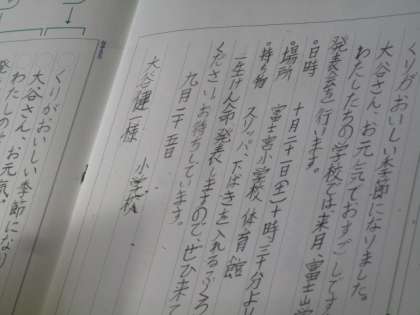 くりがおいしい季節になりました。
大谷さん、お元気でおすごしです
わたしたちの学校では来月、富士山学
発表会を行います。
日時　十月二十一日(金)十時三十分より
場所　富士宮小学校　体育館
持ち物　スリッパ、下ばきを入れるふくろ
一生けん命発表しますので、ぜひ来て
ください。お待ちしています。
九月二十五日
大谷健一様　小学校
くりがおいしい季節になり
大谷さん、お元気
わたしの
発